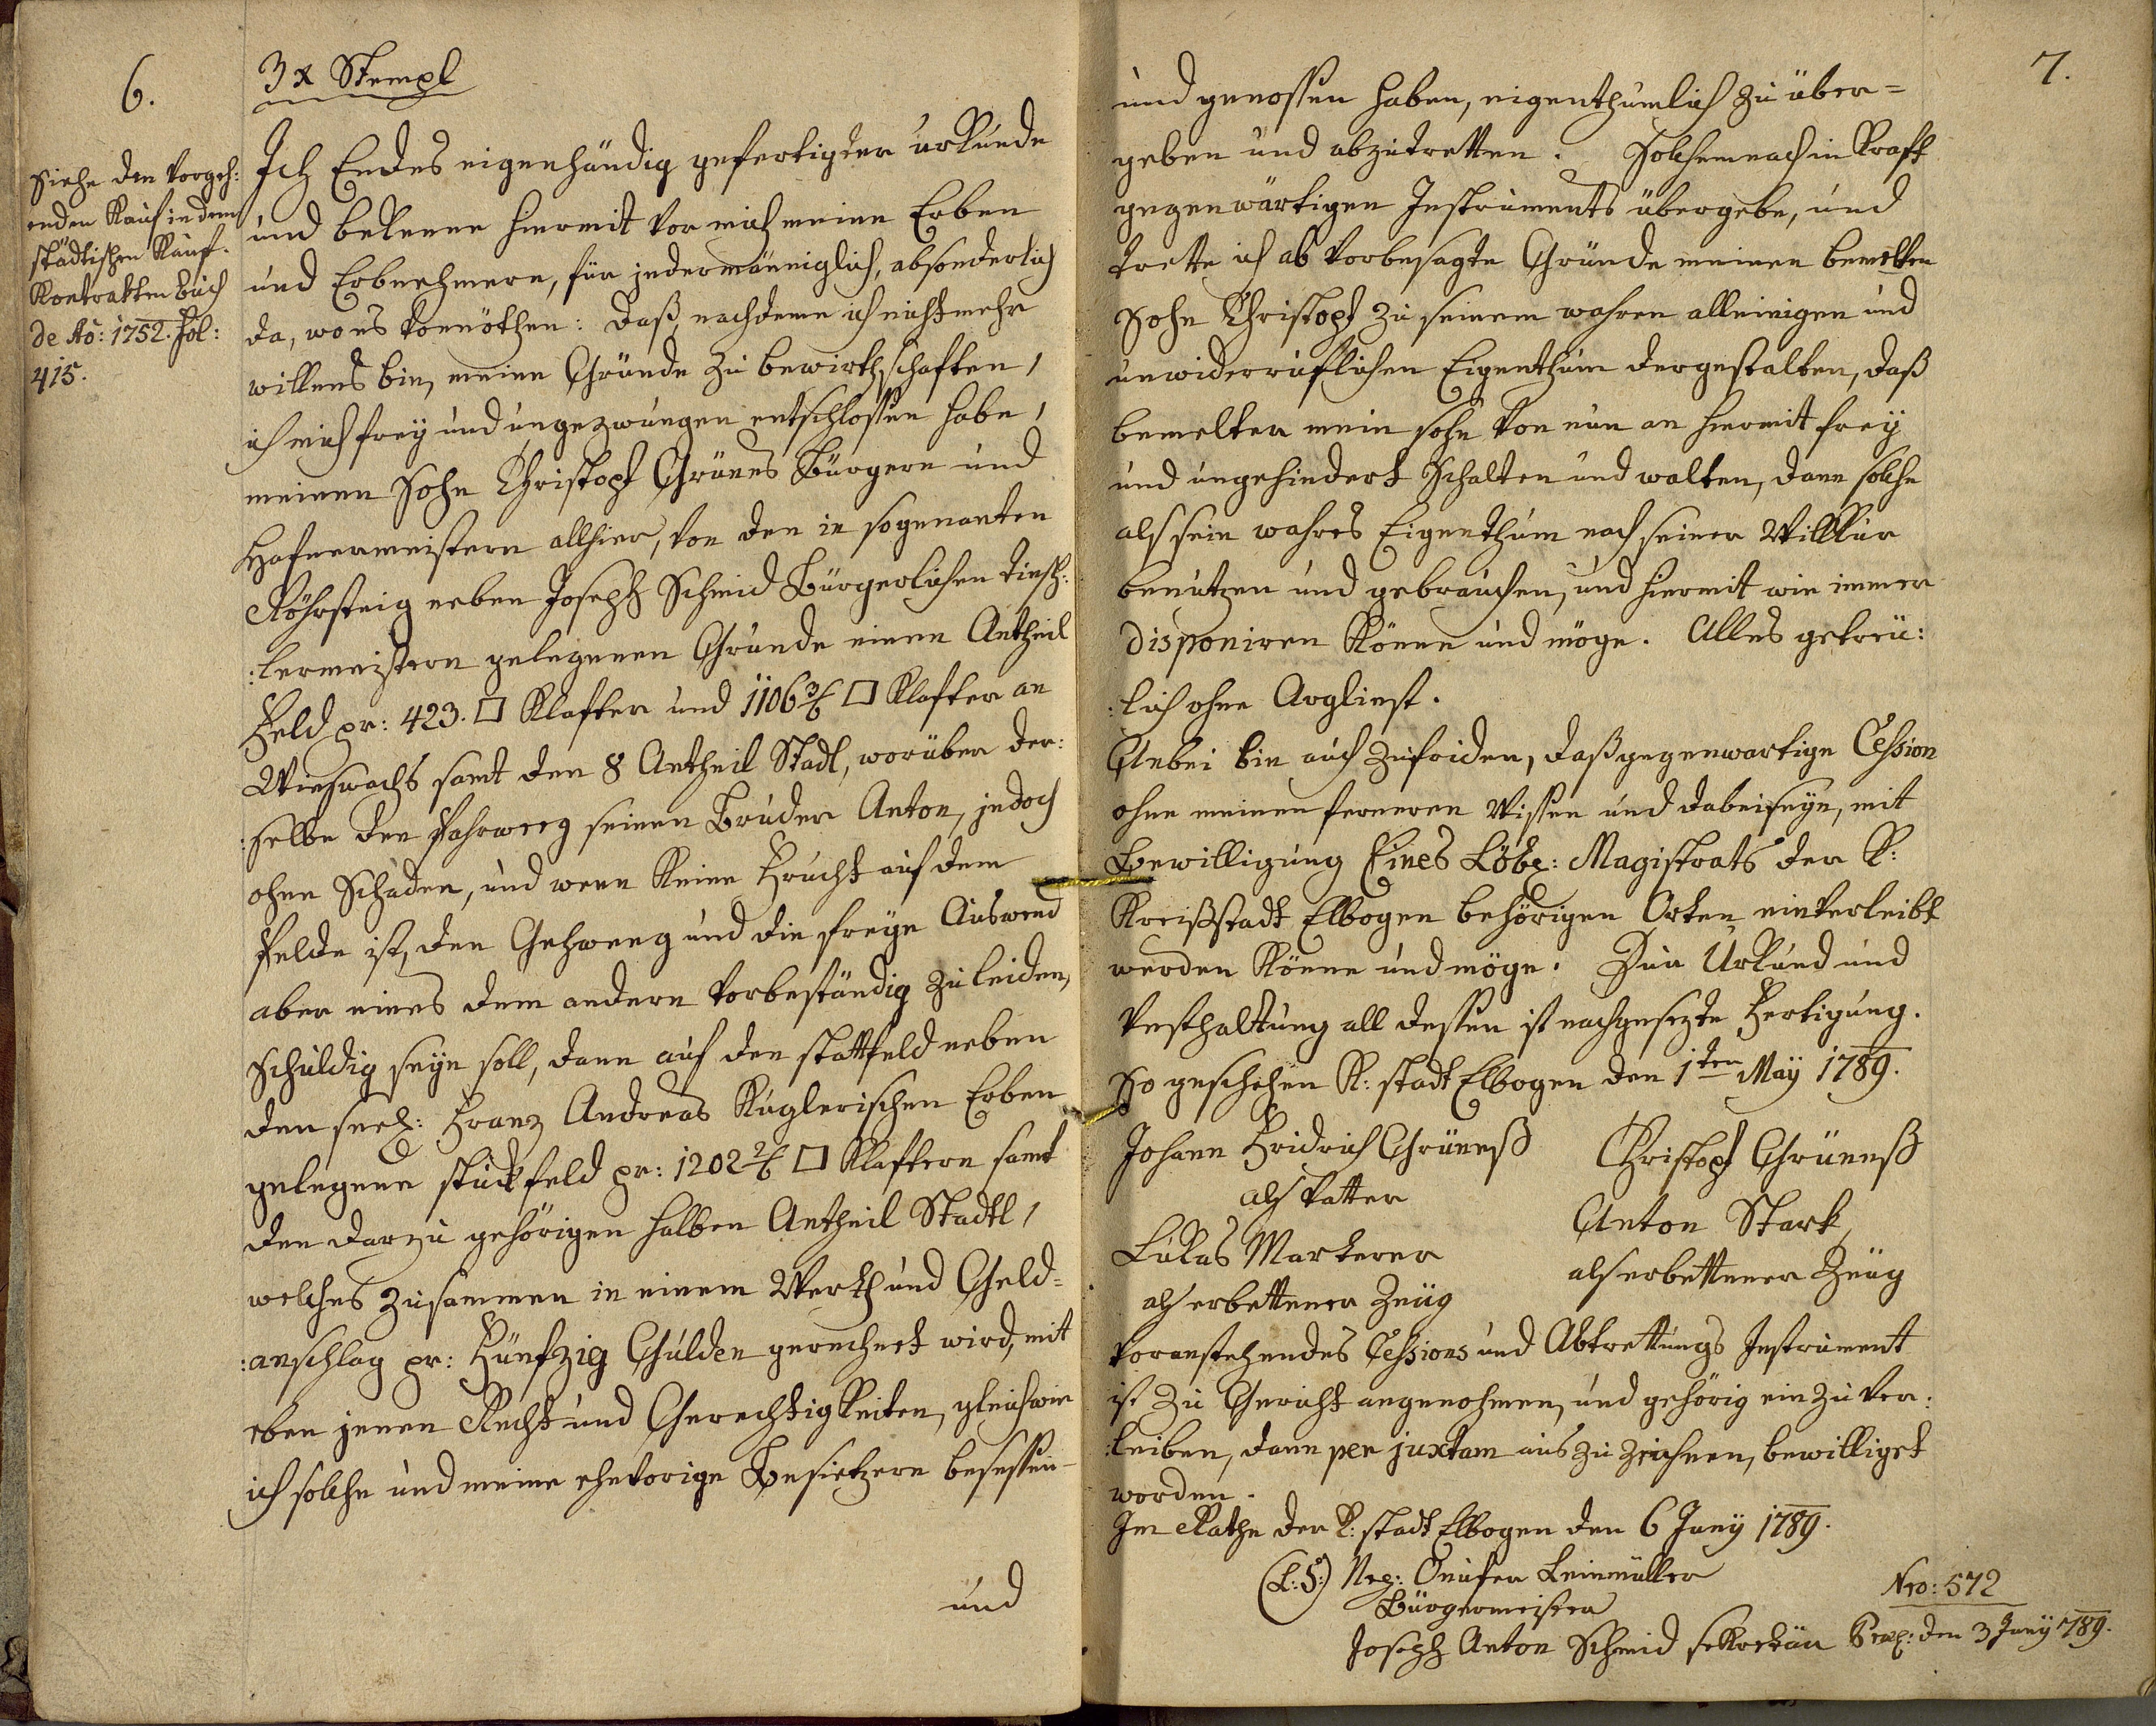 6.
3 x Stempl
Siehe den vorgeh:
enden Kauf in dem
städtischen Kauf-
Kontrakten Buch
de Aõ: 1752. Fol:
415.
Ich Endes eigenhändig gefertigter urkunde
und bekenne hiermit vor mich meine Erben
und Erbnehmern, für jedermänniglich, absonderlich
da, wo es vonnöthen: daß, nachdeme ich nicht mehr
willens bin, meine Gründe zu bewirthschaften,
ich mich frey und ungezwungen entschlossen habe,
meinen Sohn Christoph Grünes Bürgern und
Hafnermeistern allhier, von den in sogenanten
Röhrsteig neben Joseph Schmid Bürgerlichen Tisch:
:lermeistern gelegenen Grunde einen Antheil
Feld pr: 423. □ Klafter und 1106 3/6 □ Klafter an
Wießwachs samt den 8 Antheil Stadl, worüber der:
:selbe den Fahrweeg seinen Bruder Anton, jedoch
ohne Schaden, und wenn keine Frucht auf dem
Felde ist, den Gehweeg und die freye Auswend
aber eines dem andern vorbeständig zu leiden,
schuldig seyn soll, dann auf den stattfeld neben
den seel: Franz Andreas Kuglerischen Erben
gelegene stückfeld pr: 1202 2/6 □ Klaftern samt
den darzu gehörigen halben Antheil Stadtl,
welches zusammen in einem Werth und Geld-
:anschlag pr: Fünfzig Gulden gerechnet wird, mit
eben jenen Recht und Gerechtigkeiten, gleichwie
ich solche und meine ehevorige Besietzern besessen-
und
7.
und genossen haben, eigenthumlich zu über=
geben und abzutretten. Solchemnach in Kraft
gegenwärtigen Instruments übergebe, und
trette ich ab vorbesagte Gründe meinen bemelten
Sohn Christoph zu seinem wahren alleinigen und
unwiderruflichen Eigenthum dergestalten, daß
bemelter mein sohn von nun an hiermit frey
und ungehindert schalten und walten, dann solche
als sein wahres Eigenthum nach seiner Willkur
benutzen und gebrauchen, und hiermit wie immer
disponiren könne und möge. Alles getreu:
:lich ohne Arglinst.
Anbei bin auch zufriden, daß gegenwartige Cession
ohne meinen ferneren Wissen und dabeiseyn, mit
Bewilligung Eines Löbl: Magistrats der K:
Kreißstadt Elbogen behörigen Orten einverleibt
werden könne und möge. Zur Urkund und
Vesthaltung all dessen ist nachgesezte Fertigung.
So geschehen K: stadt Elbogen den 1ten May 1789.
Johann Fridrich Grüneß Christoph Grüneß
als Vatter Anton Stark,
Lukas Markerer als erbettener Zeug
als erbettener Zeüg
Voranstehendes Cessions und Abtrettungs Instrument
ist zu Gericht angenohmen, und gehörig ein zu ver:
:leiben, dann per juxtam aus zu zeichnen, bewilliget
worden.
Im Rathe der K: stadt Elbogen den 6 Juny 1789.
(L:S:) Leinmüller
Bürgermeister
Nro: 572
Joseph Anton Schmid sekretär den 3 Juny 1789.